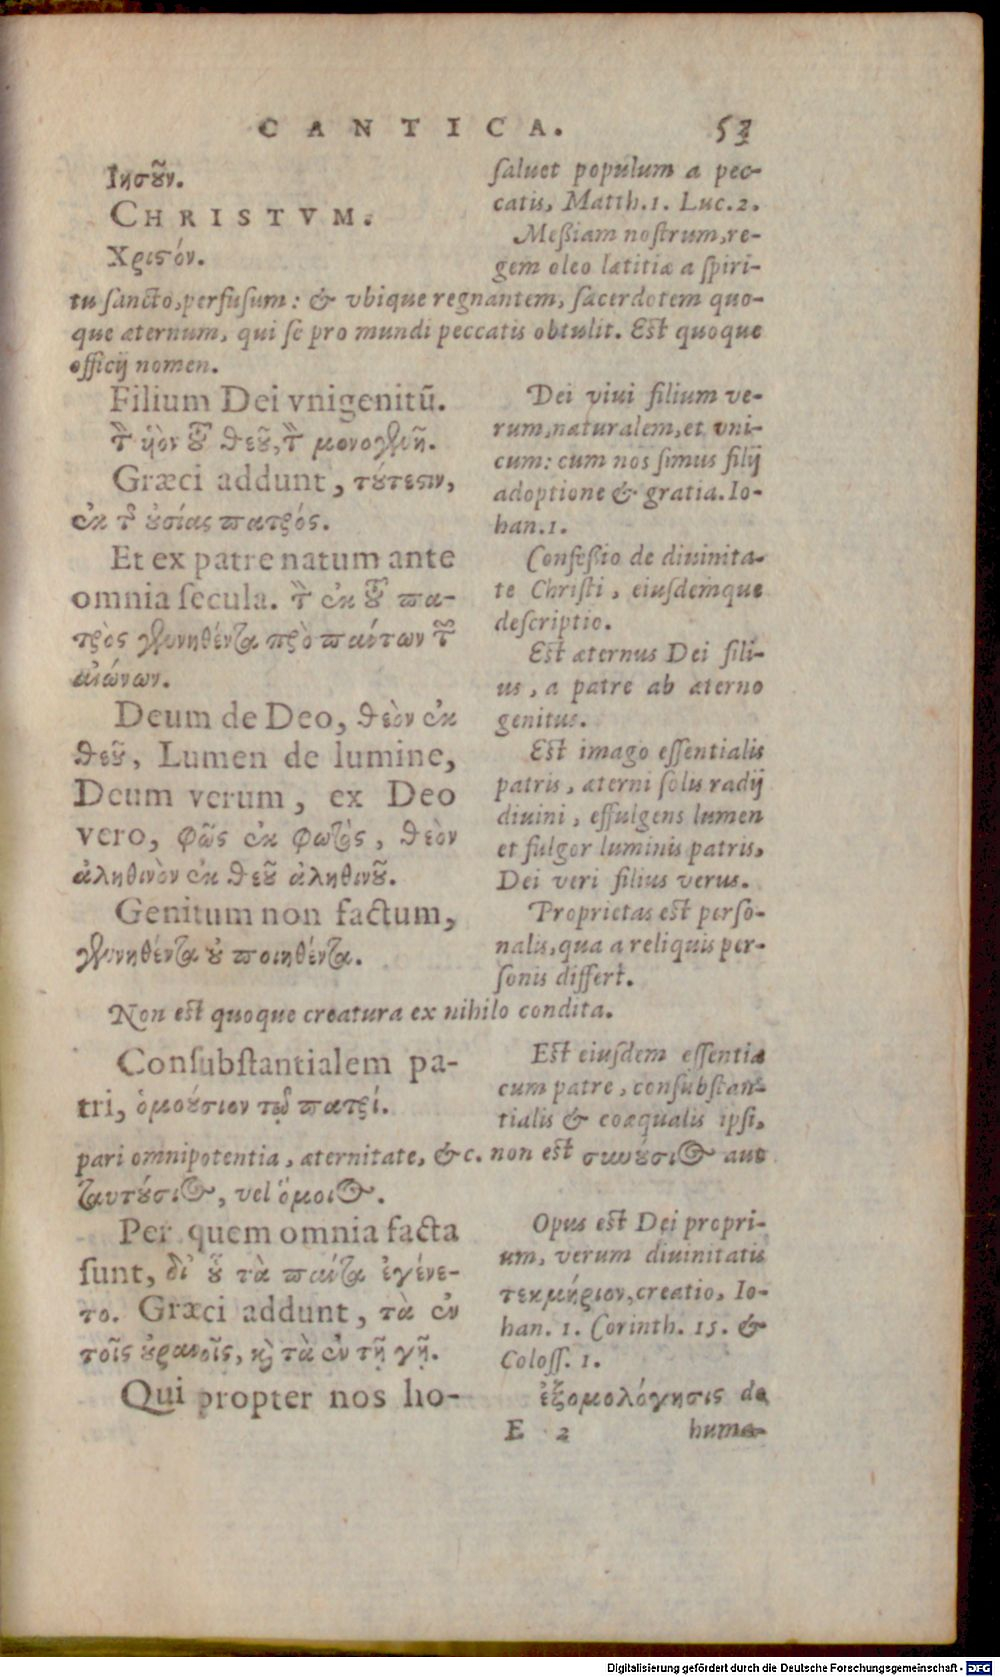 CANTICA. 53
Ιησοῦν.
CHRISTVM.
Χριστόν.
saluet populum a pec-
catis, Matth.1. Luc.2.
Meßiam nostrum, re-
gem oleo lætitiæ a spiri-
tu sancto, perfusum: & vbique regnantem, sacerdotem quo-
que æternum, qui se pro mundi peccatis obtulit. Est quoque
officij nomen.
Filium Dei vnigenitū.
τὸν ὑὸν τοῦ θεοῦ, τὸν μονογενῆ.
Græci addunt, τούτεστιν,
ἐκ τῆς οὐσίας πατρός.
Et ex patre natum ante
omnia secula. τὸν ἐκ τοῦ πα-
τρὸς γεννηθέντα πρὸ πάντων τῶν
αἰώνων.
Deum de Deo, θεὸν ἐκ
θεοῦ, Lumen de lumine,
Deum verum, ex Deo
vero, φῶς ἐκ φωτὸς, θεὸν
ἀληθινὸν ἐκ θεοῦ ἀληθινοῦ.
Genitum non factum,
γεννηθέντα οὐ ποιηθέντα.
Dei viui filium ve-
rum, naturalem, et vni-
cum: cum nos simus filij
adoptione & gratia. Io-
han.1.
Confeßio de diuinita-
te Christi, eiusdemque
descriptio.
Est æternus Dei fili-
us, a patre ab æterno
genitus.
Est imago essentialis
patris, æterni solis radij
diuini, effulgens lumen
et fulgor luminis patris,
Dei veri filius verus.
Proprietas est perso-
nalis, qua a reliquis per-
sonis differt.
Non est quoque creatura ex nihilo condita.
Consubstantialem pa-
tri, ὁμοούσιον τῷ πατρί.
Est eiusdem essentiæ
cum patre, consubstan-
tialis & coæqualis ipsi,
pari omnipotentia, æternitate, &c. non est συνούσιος aut
ταυτούσιος, vel ὅμοιος.
Per quem omnia facta
sunt, δι' οὗ τὰ πάντα ἐγένε-
το. Græci addunt, τὰ ἐν
τοῖς οὐρανοῖς, καὶ τὰ ἐν τῇ γῇ.
Qui propter nos ho-
Opus est Dei propri-
um, verum diuinitatis
τεκμήριον, creatio, Io-
han. 1. Corinth. 15. &
Coloss. 1.
ἐξομολόγησις de
E 2 huma-
Digitalisierung gefördert durch die Deutsche Forschungsgemeinschaft - DFG